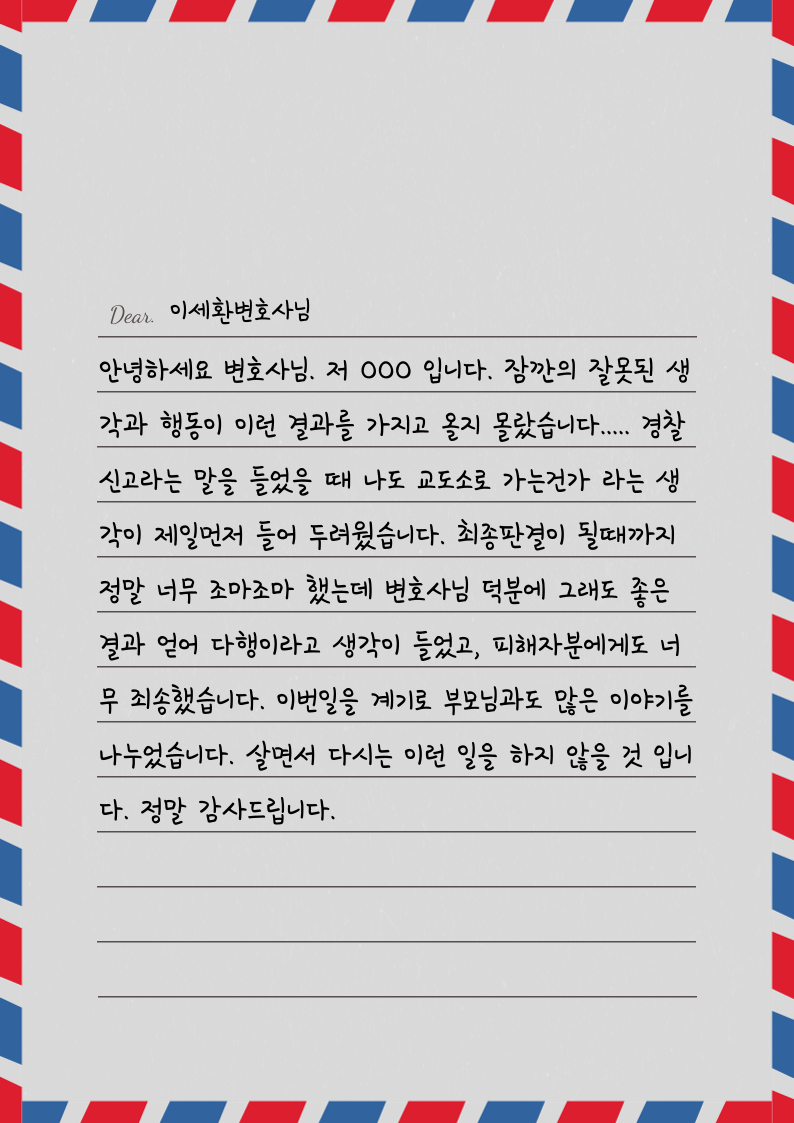 Dear. 이세환변호사님
안녕하세요 변호사님. 저 OOO 입니다. 잠깐의 잘못된 생
각과 행동이 이런 결과를 가지고 올지 몰랐습니다..... 경찰
신고라는 말을 들었을 때 나도 교도소로 가는건가 라는 생
각이 제일먼저 들어 두려웠습니다. 최종판결이 될때까지
정말 너무 조마조마 했는데 변호사님 덕분에 그래도 좋은
결과 얻어 다행이라고 생각이 들었고, 피해자분에게도 너
무 죄송했습니다. 이번일을 계기로 부모님과도 많은 이야기를
나누었습니다. 살면서 다시는 이런 일을 하지 않을 것 입니
다. 정말 감사드립니다.